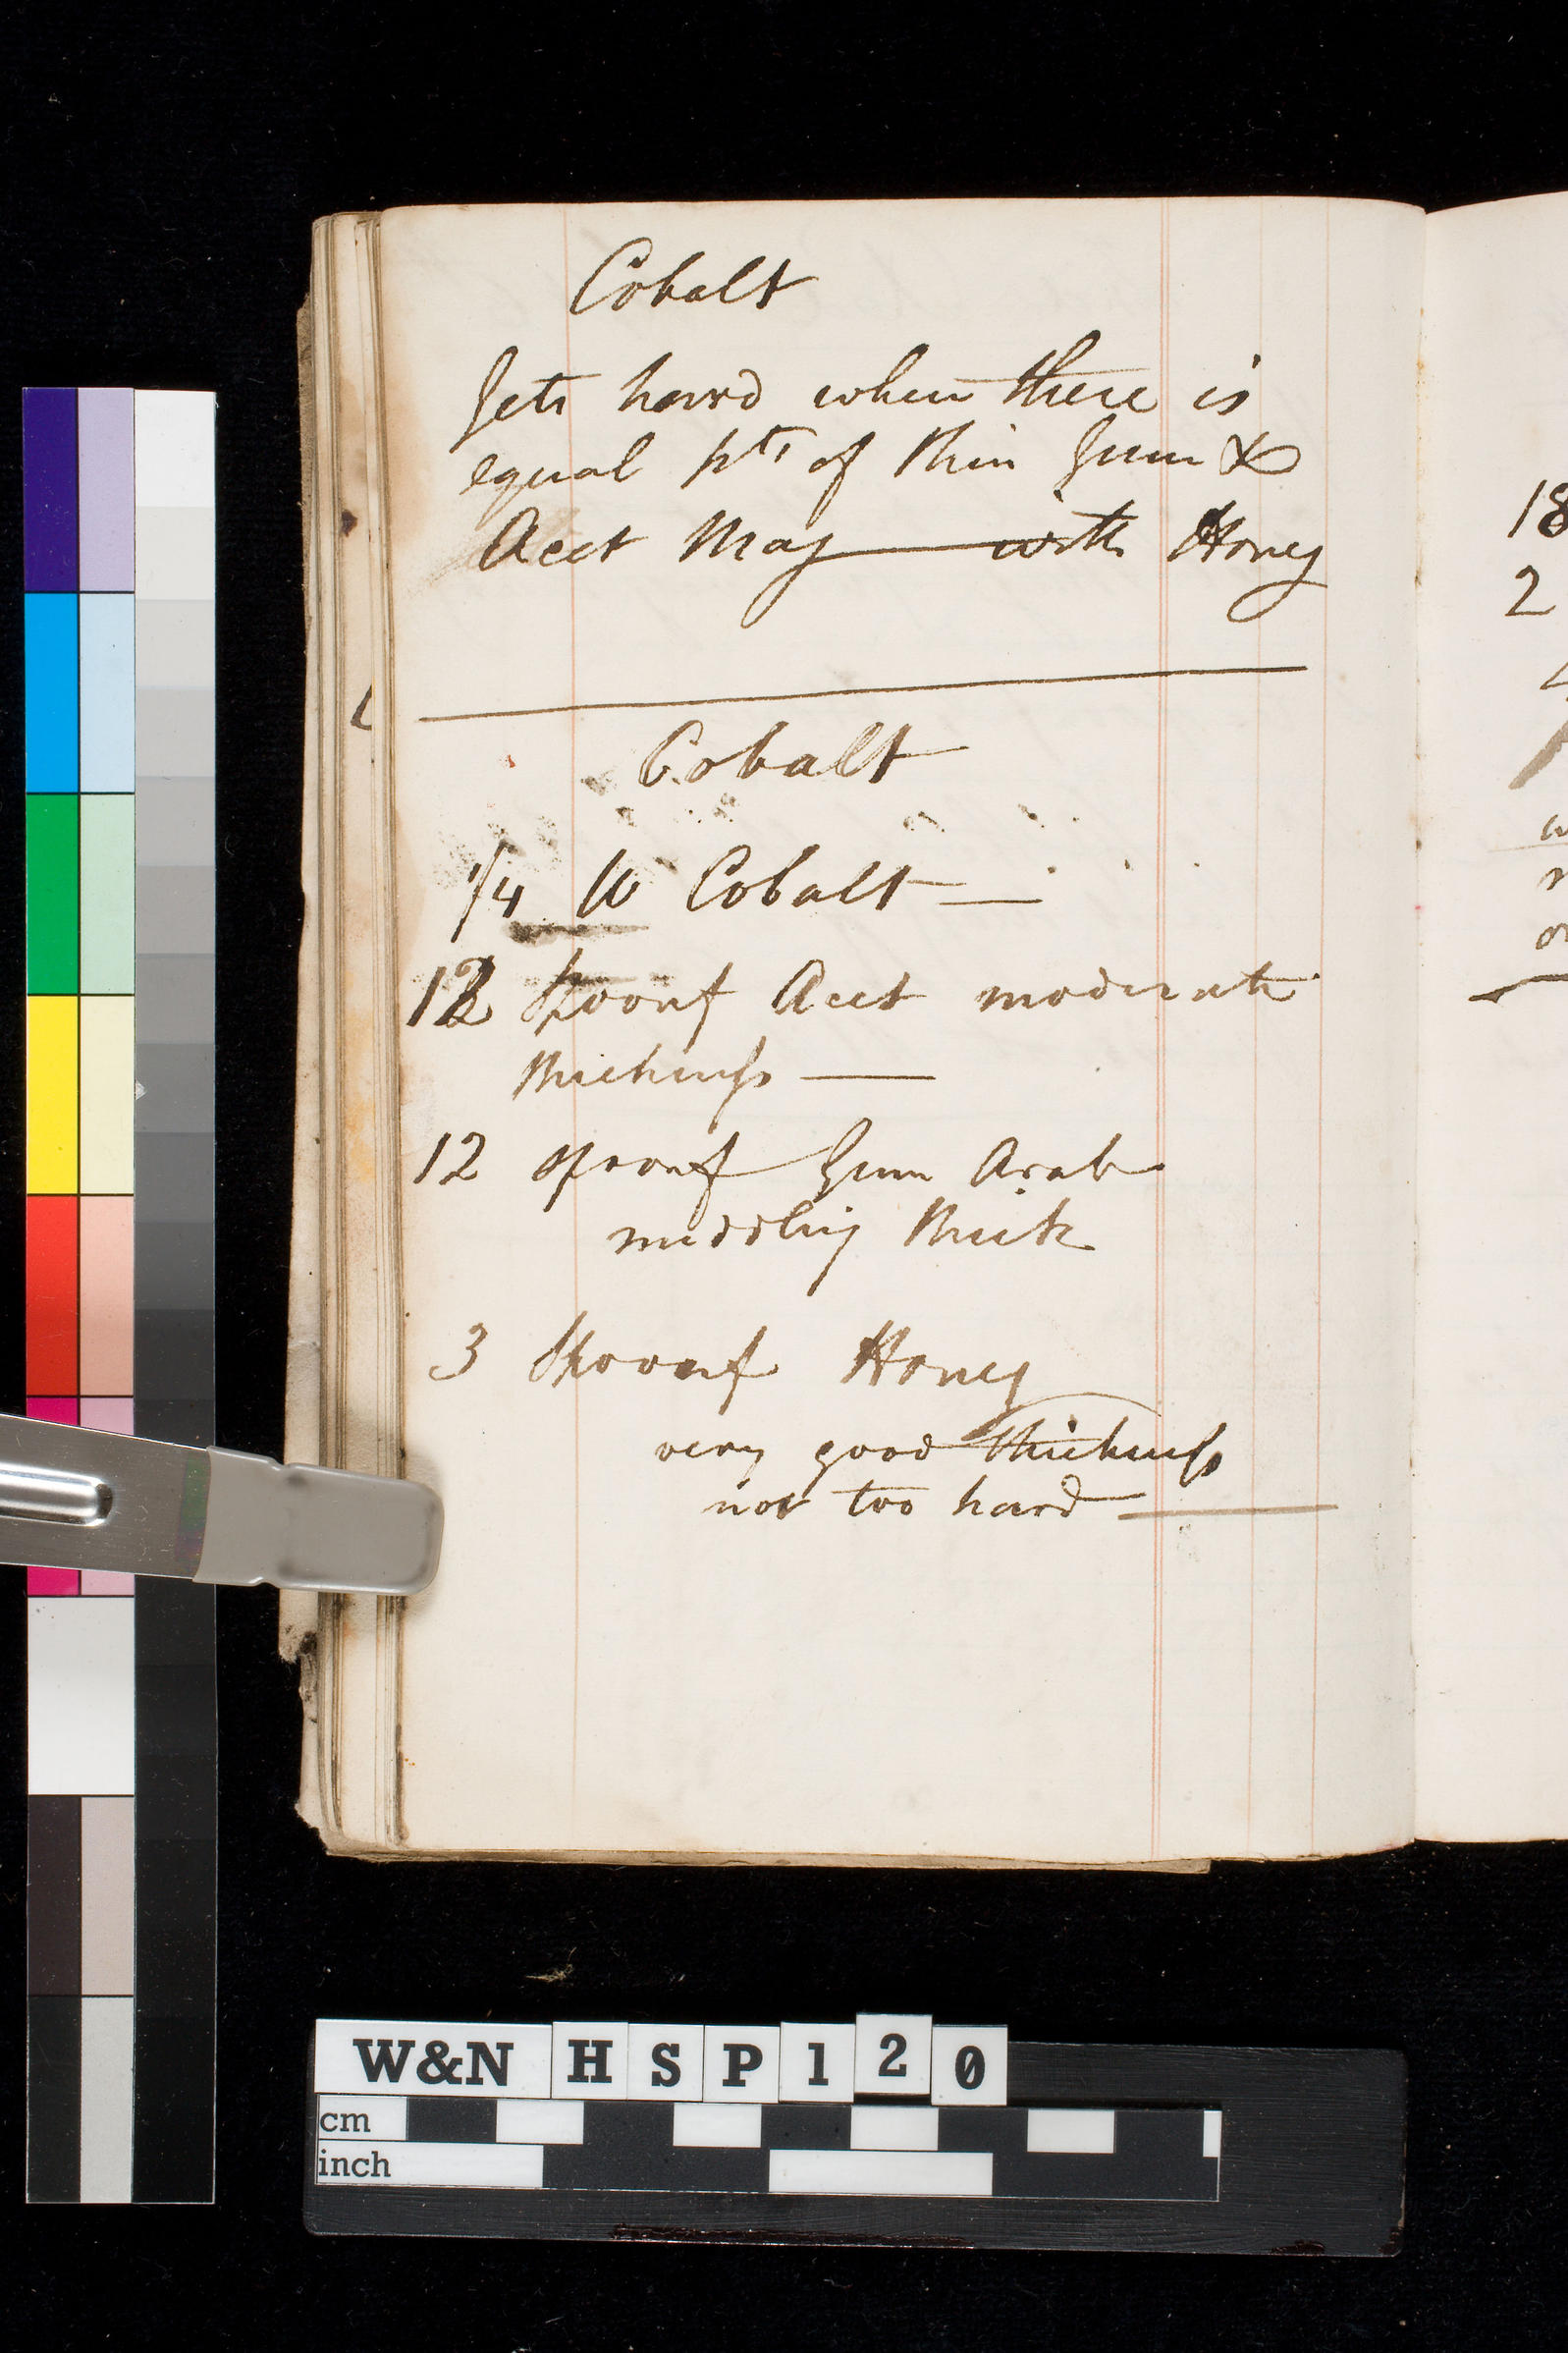 Cobalt
Gets hard when there is
equal pts of thin Gum &
Acet Mag — with Honey
Cobalt
1/4 lb Cobalt —
12 Spoonf Acet moderate
thickness —
12 spoonf Gum Arab
middling thick
3 Spoonf Honey
very good thickness
not too hard —
18
2
W&N HSP120
cm
inch